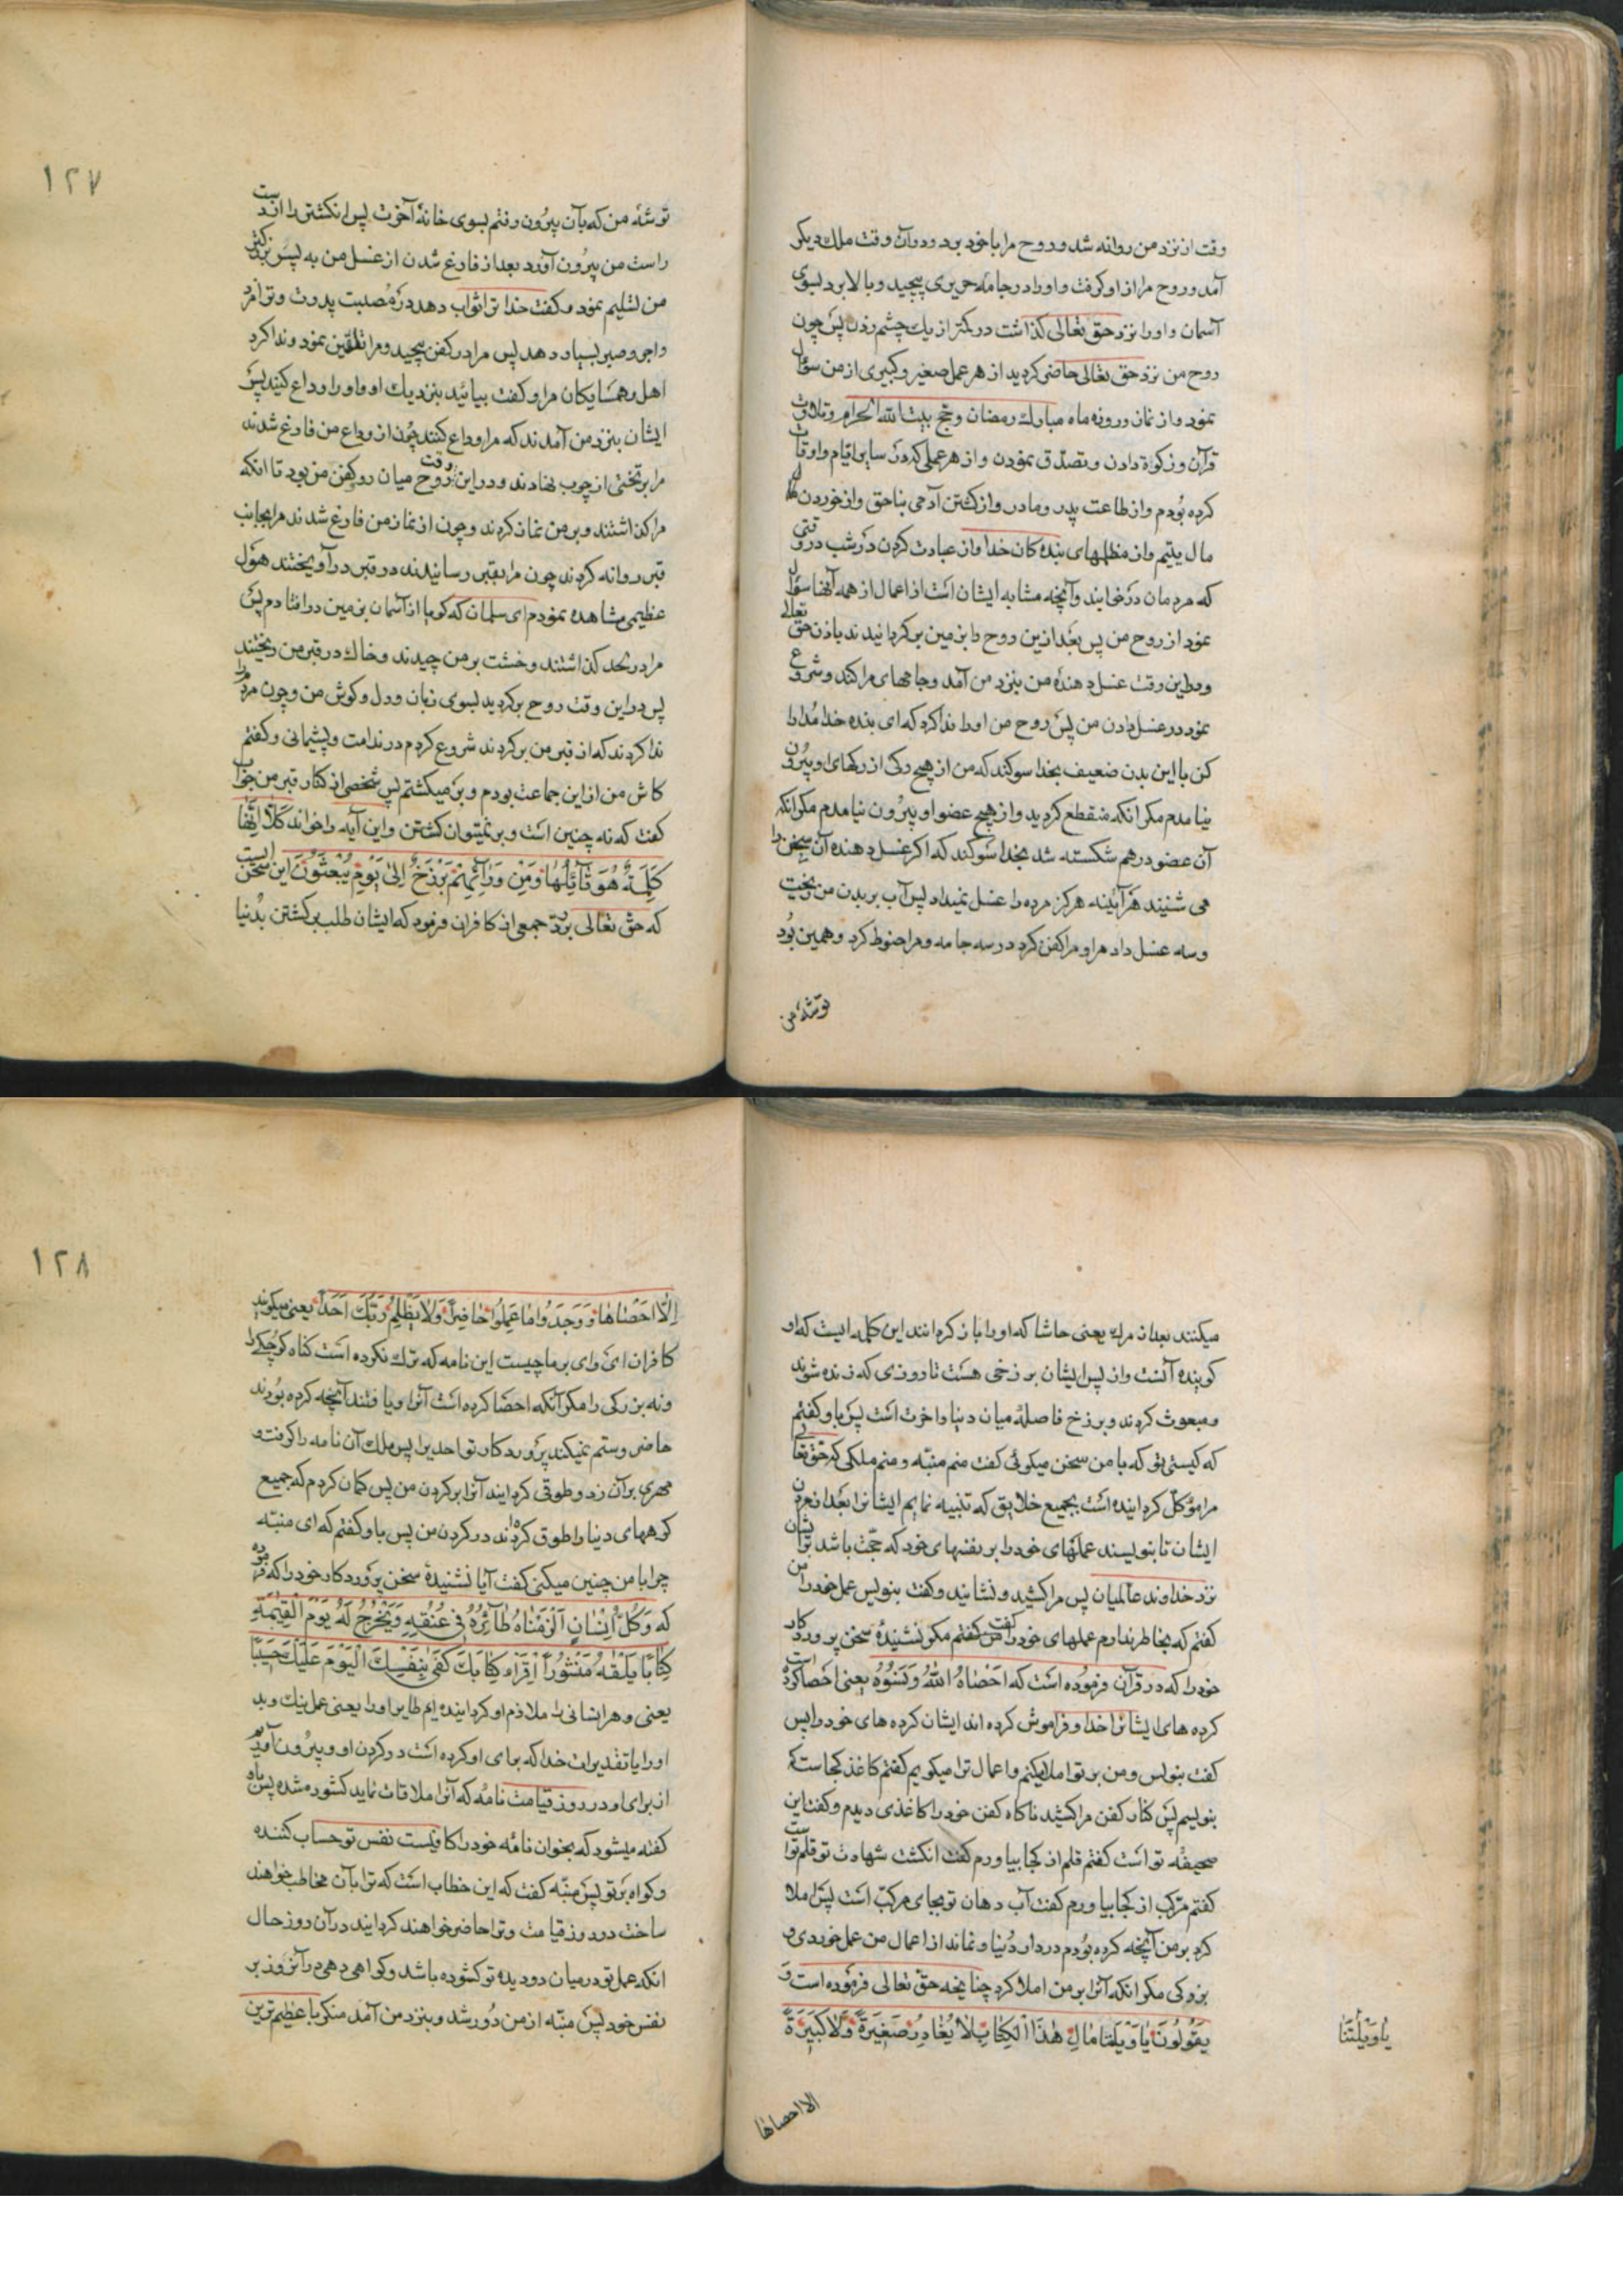 وقت از نزد من روانه شد و روح مرا با خود برد و در آن وقت ملك دیكر
آمد و روح مرا از او كرفت و او را در جامهٔ حریری پیچید و بالا برد بسوی
آسمان و او را نزد حق تعالی كذاشت در كمتر از یك چشم زدن پس چون
روح من نزد حق تعالی حاضر كردید از هر عمل صغیر و كبیری از من سؤال
نمود و از نماز و روزه ماه مبارك رمضان و حج بیت الله الحرام و تلاوت
قرآن و زكوة دادن و تصدّق نمودن و از هر عملی كه در سایر ایام و اوقات
كرده بودم و از طاعت پدر و مادر و از كشتن آدمی بناحق و از خوردن
مال یتیم و از مظلمهای بنده كان خدا و از عبادت كردن در شب در وقتی
كه مردمان در خوابند و آنچه مشابه ایشان است از اعمال از همه آنها سؤال
نمود از روح من پس بعد ازین روح را بزمین بركردانیدند باذن حق تعالی
و در این وقت غسل دهندهٔ من بنزد من آمد و جامهای مرا كند و شروع
نمود در غسل دادن من پس روح من او را ندا كرد كه ای بنده خدا مدارا
كن با این بدن ضعیف بخدا سوكند كه من از هیچ ركی از ركهای او بیرون
نیامدم مكر انكه منقطع كردید و از هیچ عضو او بیرون نیامدم مكر انكه
آن عضو درهم شكسته شد بخدا سوكند كه اكر غسل دهنده آن سخن را
می شنیند هرآینه هركز مرده را غسل نمیداد پس آب بر بدن من ریخت
و سه غسل داد مرا و مرا كفن كرد در سه جامه و مرا حنوط كرد و همین بود
توشهٔ من
١٢٧
توشهٔ من كه بآن بیرون رفتم بسوی خانهٔ آخرت پس انكشتر را از دست
راست من بیرون آورد بعد از فارغ شدن از غسل من به پسر بزركتر
من تسلیم نمود و كفت خدا ترا ثواب دهد در مصیبت پدرت و ترا مزد
و اجر و صبر بسیار دهد پس مرا در كفن پیچید و مرا تلقین نمود و ندا كرد
اهل و همسایكان مرا و كفت بیائید بنزدیك او و او را وداع كنید پس
ایشان بنزد من آمدند كه مرا وداع كنند چون از وداع من فارغ شدند
مرا بر تختی از چوب نهادند و در این وقت روح میان رو و كفن من بود تا انكه
مرا كذاشتند و بر من نماز كردند و چون از نماز من فارغ شدند مرا بجانب
قبر روانه كردند چون مرا بقبر رسانیدند در قبر در آویختند هول
عظیمی مشاهده نمودم ای سلمان كه كویا از آسمان بزمین در افتادم پس
مرا در لحد كذاشتند و خشت بر من چیدند و خاك در قبر من ریختند
پس در این وقت روح بركردید بسوی زبان و دل و كوش من و چون مردم را
ندا كردند كه از قبر من بركردند شروع كردم در ندامت و پشیمانی و كفتم
كاش من از این جماعت بودم و برمیكشتم پس شخصی از كنار قبر من جواب
كفت كه نه چنین است و بر نمیتوان كشتن و این آیه را خواند كَلَّا اِنَّهَا
كَلِمَةٌ هُوَ قَآئِلُهَا وَمِنْ وَرَآئِهِمْ بَرْزَخٌ اِلىٰ يَوْمِ يُبْعَثُونَ این سخن ایست
كه حق تعالی برد جمعی از كافران فرمود كه ایشان طلب بركشتن بدنیا
میكنند بعد از مرك یعنی حاشا كه او را باز كردانند این كلمه ایست كه او
كوینده آنست و از پس ایشان برزخی هست تا روزی كه زنده شوند
و مبعوث كردند و برزخ فاصلهٔ میان دنیا و اخرت است پس باو كفتم
كه كیستی تو كه با من سخن میكوئی كفت منم منبّه و منم ملكی كه حق تعالی
مرا موكّل كردانیده است بجمیع خلایق كه تنبیه نمایم ایشانرا بعد از مردن
ایشان تا بنویسند عملهای خود را بر نفسهای خود كه حجّت باشد بر ایشان
نزد خداوند عالمیان پس مرا كشید و نشانید و كفت بنویس عمل خود را من
كفتم كه بخاطر ندارم عملهای خود را كفت مكر نشنیدهٔ سخن پروردكار
خود را كه در قرآن فرموده است كه اَحْصٰاهُ اللّٰهُ وَنَسُوهُ یعنی احصا كرده است
كرده های ایشانرا خدا و فراموش كرده اند ایشان كرده های خود را پس
كفت بنویس و من بر تو املا میكنم و اعمال ترا میكویم كفتم كاغذ كجاست كه
بنویسم پس كنار كفن مرا كشید ناكاه كفن خود را كاغذی دیدم و كفت این
صحیفه تو است كفتم قلم از كجا بیاورم كفت انكشت شهادت تو قلم تو است
كفتم مركّب از كجا بیاورم كفت آب دهان تو بجای مركّب است پس املا
كرد بر من آنچه كرده بودم در دار دنیا و نماند از اعمال من عمل خوردی و
بزركی مكر انكه آنرا بر من املا كرد چنانچه حق تعالی فرموده است وَ
يَقُولُونَ يٰا وَيْلَتَنٰا مٰالِ هٰذَا الْكِتٰابِ لٰا يُغٰادِرُ صَغِيرَةً وَلٰا كَبِيرَةً
يٰا وَيْلَتَنٰا
الا احصاها
١٢٨
اِلّٰا اَحْصٰاهٰا وَوَجَدُوا مٰا عَمِلُوا حٰاضِراً وَلٰا يَظْلِمُ رَبُّكَ اَحَداً یعنی میكویند
كافران ای وای بر ما چیست این نامه كه ترك نكرده است كناه كوچك را
و نه بزركی را مكر آنكه احصا كرده است آنرا و یافتند آنچه كرده بودند
حاضر و ستم نمیكند پروردكار تو احدیرا پس ملك آن نامه را كرفت و
مهری بر آن زد و طوقی كردانید آنرا بر كردن من پس كمان كردم كه جمیع
كوههای دنیا را طوق كرده اند در كردن من پس باو كفتم كه ای منبّه
چرا با من چنین میكنی كفت آیا نشنیدهٔ سخن پروردكار خود را كه فرموده
كه وَكُلَّ اِنْسٰانٍ اَلْزَمْنٰاهُ طٰآئِرَهُ فِي عُنُقِهِ وَنُخْرِجُ لَهُ يَوْمَ الْقِيٰمَةِ
كِتٰابًا يَلْقٰهُ مَنْشُوراً اِقْرَاْ كِتٰابَكَ كَفىٰ بِنَفْسِكَ الْيَوْمَ عَلَيْكَ حَسِيبًا
یعنی و هر انسانی را ملازم او كردانیده ایم طایر او را یعنی عمل نیك و بد
او را یا تقدیرات خدا كه برای او كرده است در كردن او و بیرون آوریم
از برای او در روز قیامت نامهٔ كه آنرا ملاقات نماید كشوده شده پس باو
كفته میشود كه بخوان نامهٔ خود را كافیست نفس تو حساب كننده
و كواه بر تو پس منبّه كفت كه این خطاب است كه ترا بآن مخاطب خواهند
ساخت در روز قیامت و ترا حاضر خواهند كردانید در آن روز حال
انكه عمل تو در میان دو دیده تو كشوده باشد و كواهی دهی در آنروز بر
نفس خود پس منبّه از من دور شد و بنزد من آمد منكر با عظیم ترین